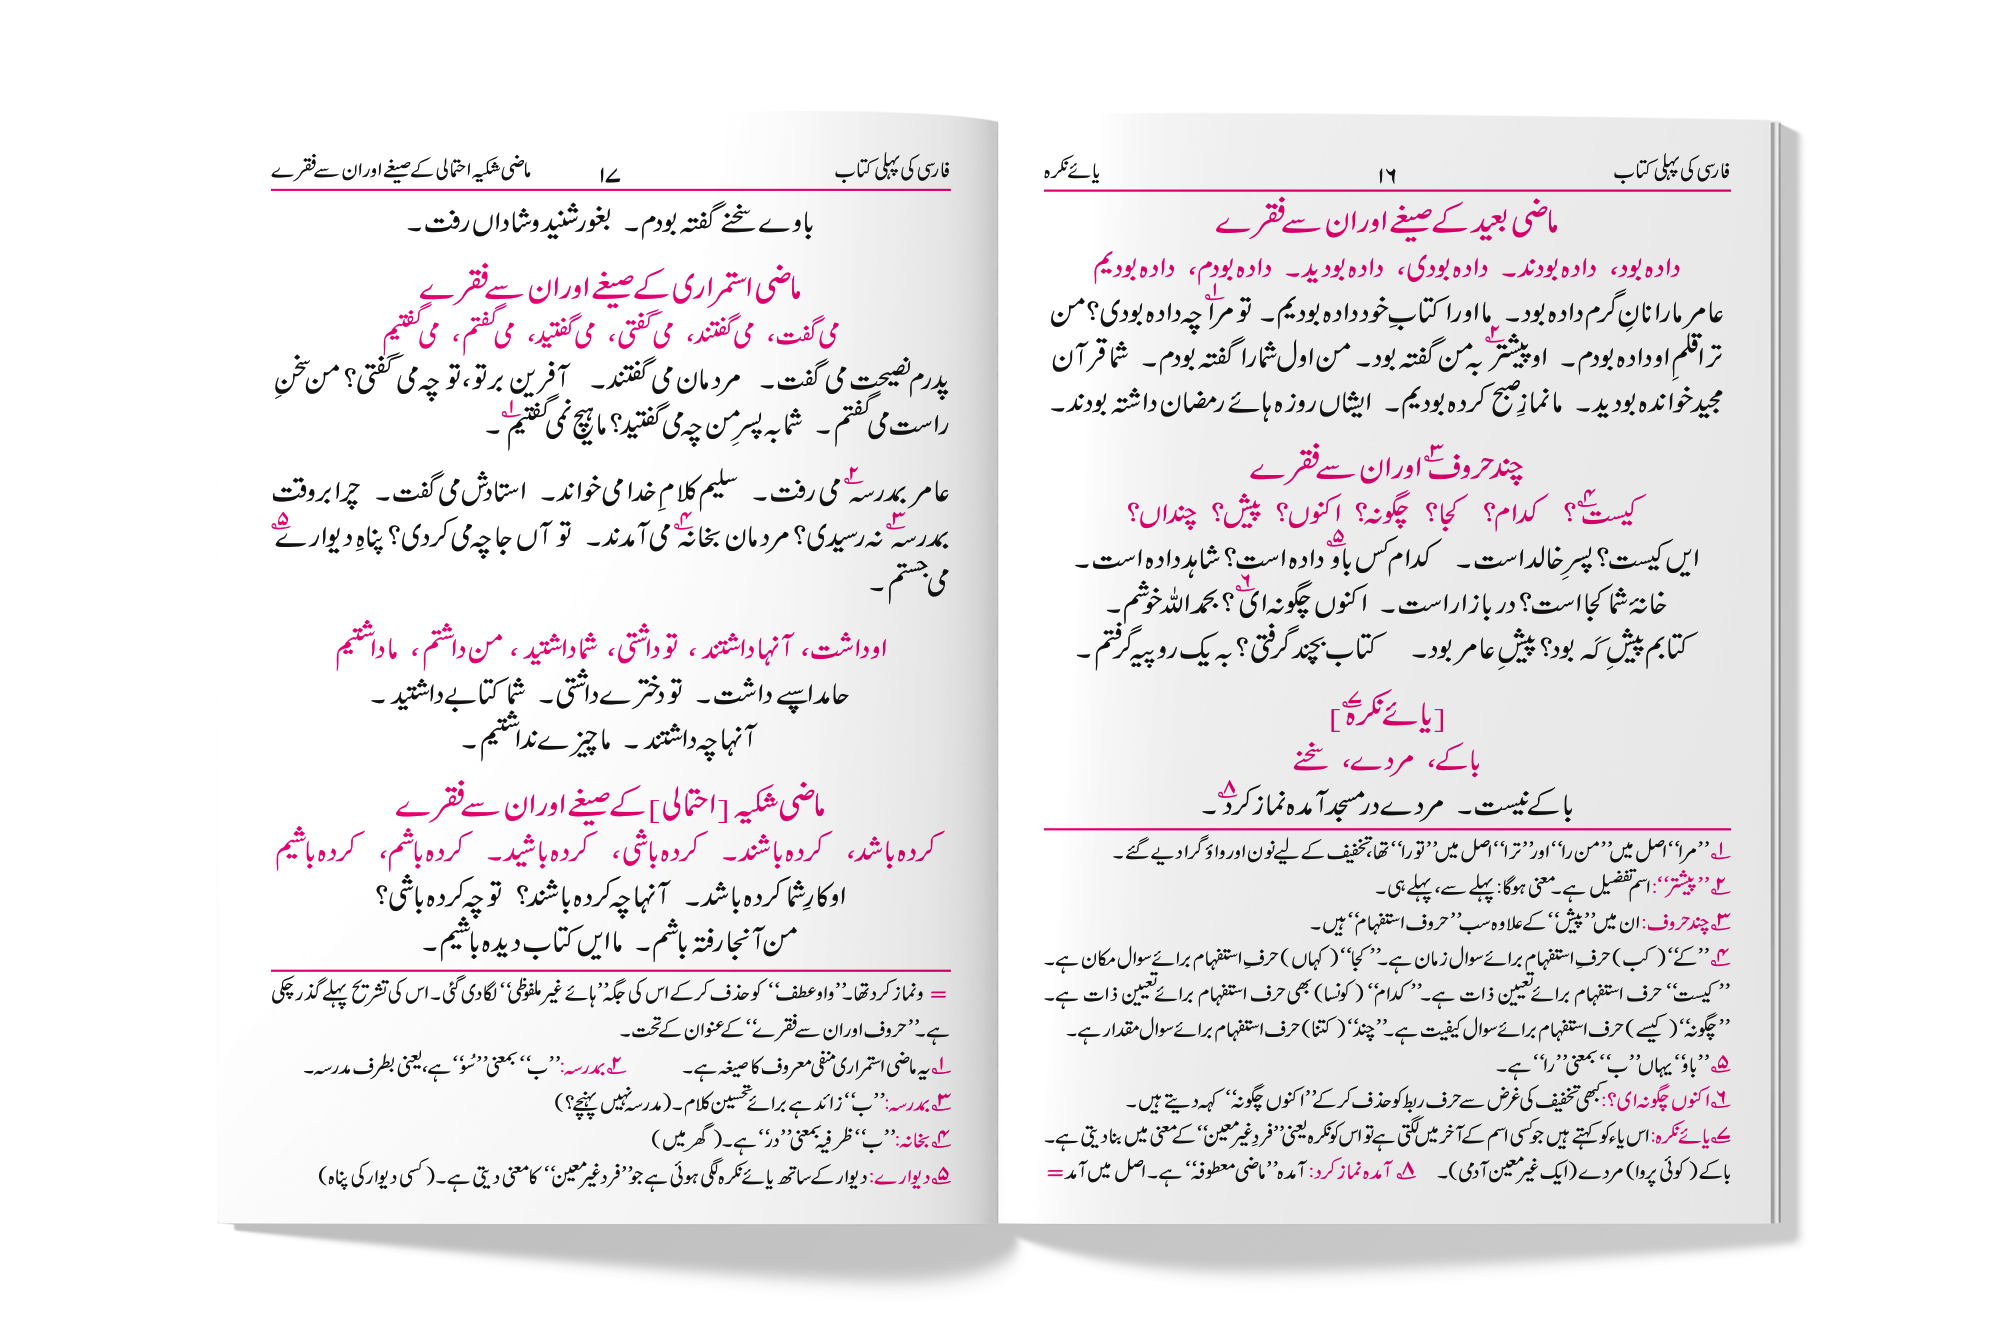 فارسی کی پہلی کتاب ۱۶ یائے نکرہ
ماضی بعید کے صیغے اور ان سے فقرے
دادہ بود، دادہ بودند۔ دادہ بودی، دادہ بودید۔ دادہ بودم، دادہ بودیم
عامر مارا نانِ گرم دادہ بود۔ ما اورا کتابِ خود دادہ بودیم۔ تو مرا۱؎ چہ دادہ بودی؟ من
ترا قلمِ او دادہ بودم۔ او پیشتر۲؎ بہ من گفتہ بود۔ من اول شمارا گفتہ بودم۔ شما قرآن
مجید خواندہ بودید۔ ما نمازِ صبح کردہ بودیم۔ ایشاں روزہ ہائے رمضان داشتہ بودند۔
چند حروف۳؎ اور ان سے فقرے
کیست۴؎؟ کدام؟ کجا؟ چگونہ؟ اکنوں؟ پیش؟ چنداں؟
ایں کیست؟ پسرِ خالد است۔ کدام کس باو۵؎ دادہ است؟ شاہد دادہ است۔
خانۂ شما کجا است؟ در بازار است۔ اکنوں چگونہ ای۶؎؟ بحمد اللہ خوشم۔
کتابم پیشِ کَہ بود؟ پیشِ عامر بود۔ کتاب بچند گرفتی؟ بہ یک روپیہ گرفتم۔
[یائے نکرہ۷؎]
باکے، مردے، سخنے
باکے نیست۔ مردے در مسجد آمدہ نماز کرد۸؎۔
۱؎ ”مرا“ اصل میں ”من را“ اور ”ترا“ اصل میں ”تو را“ تھا، تخفیف کے لیے نون اور واؤ گرا دیے گئے۔
۲؎ ”پیشتر“: اسم تفضیل ہے۔ معنی ہوگا: پہلے سے، پہلے ہی۔
۳؎ چند حروف: ان میں ”پیش“ کے علاوہ سب ”حروف استفہام“ ہیں۔
۴؎ ”کے“ (کب) حرفِ استفہام برائے سوال زمان ہے۔ ”کجا“ (کہاں) حرفِ استفہام برائے سوال مکان ہے۔
”کیست“ حرف استفہام برائے تعیین ذات ہے۔ ”کدام“ (کونسا) بھی حرف استفہام برائے تعیین ذات ہے۔
”چگونہ“ (کیسے) حرف استفہام برائے سوال کیفیت ہے۔ ”چند“ (کتنا) حرف استفہام برائے سوال مقدار ہے۔
۵؎ ”باو“ یہاں ”ب“ بمعنی ”را“ ہے۔
۶؎ اکنوں چگونہ ای؟: کبھی تخفیف کی غرض سے حرف ربط کو حذف کر کے ”اکنوں چگونہ“ کہہ دیتے ہیں۔
۷؎ یائے نکرہ: اس یاء کو کہتے ہیں جو کسی اسم کے آخر میں لگتی ہے تو اس کو نکرہ یعنی ”فردِ غیر معین“ کے معنی میں بنا دیتی ہے۔
باکے (کوئی پروا) مردے (ایک غیر معین آدمی)۔ ۸؎ آمدہ نماز کرد: آمدہ ”ماضی معطوفہ“ ہے۔ اصل میں آمد =
فارسی کی پہلی کتاب ۱۷ ماضی شکیہ احتمالی کے صیغے اور ان سے فقرے
باوے سخنے گفتہ بودم۔ بغور شنید و شاداں رفت۔
ماضی استمراری کے صیغے اور ان سے فقرے
می گفت، می گفتند، می گفتی، می گفتید، می گفتم، می گفتیم
پدرم نصیحت می گفت۔ مردمان می گفتند۔ آفرین بر تو، تو چہ می گفتی؟ من سخنِ
راست می گفتم۔ شما بہ پسرِ من چہ می گفتید؟ ما ہیچ نمی گفتیم۱؎۔
عامر بمدرسہ۲؎ می رفت۔ سلیم کلامِ خدا می خواند۔ استادش می گفت۔ چرا بروقت
بمدرسہ۳؎ نہ رسیدی؟ مردمان بخانہ۴؎ می آمدند۔ تو آں جا چہ می کردی؟ پناہِ دیوارے۵؎
می جستم۔
او داشت، آنہا داشتند، تو داشتی، شما داشتید، من داشتم، ما داشتیم
حامد اسپے داشت۔ تو دخترے داشتی۔ شما کتابے داشتید۔
آنہا چہ داشتند۔ ما چیزے نداشتیم۔
ماضی شکیہ [احتمالی] کے صیغے اور ان سے فقرے
کردہ باشد، کردہ باشند۔ کردہ باشی، کردہ باشید۔ کردہ باشم، کردہ باشیم
او کارِ شما کردہ باشد۔ آنہا چہ کردہ باشند؟ تو چہ کردہ باشی؟
من آنجا رفتہ باشم۔ ما ایں کتاب دیدہ باشیم۔
= و نماز کرد تھا۔ ”واو عطف“ کو حذف کر کے اس کی جگہ ”ہائے غیر ملفوظی“ لگا دی گئی۔ اس کی تشریح پہلے گذر چکی
ہے۔ ”حروف اور ان سے فقرے“ کے عنوان کے تحت۔
۱؎ یہ ماضی استمراری منفی معروف کا صیغہ ہے۔ ۲؎ بمدرسہ: ”ب“ بمعنی ”سُو“ ہے، یعنی بطرف مدرسہ۔
۳؎ بمدرسہ: ”ب“ زائد ہے برائے تحسین کلام۔ (مدرسہ نہیں پہنچے؟)
۴؎ بخانہ: ”ب“ ظرفیہ بمعنی ”در“ ہے۔ (گھر میں)
۵؎ دیوارے: دیوار کے ساتھ یائے نکرہ لگی ہوئی ہے جو ”فرد غیر معین“ کا معنی دیتی ہے۔ (کسی دیوار کی پناہ)